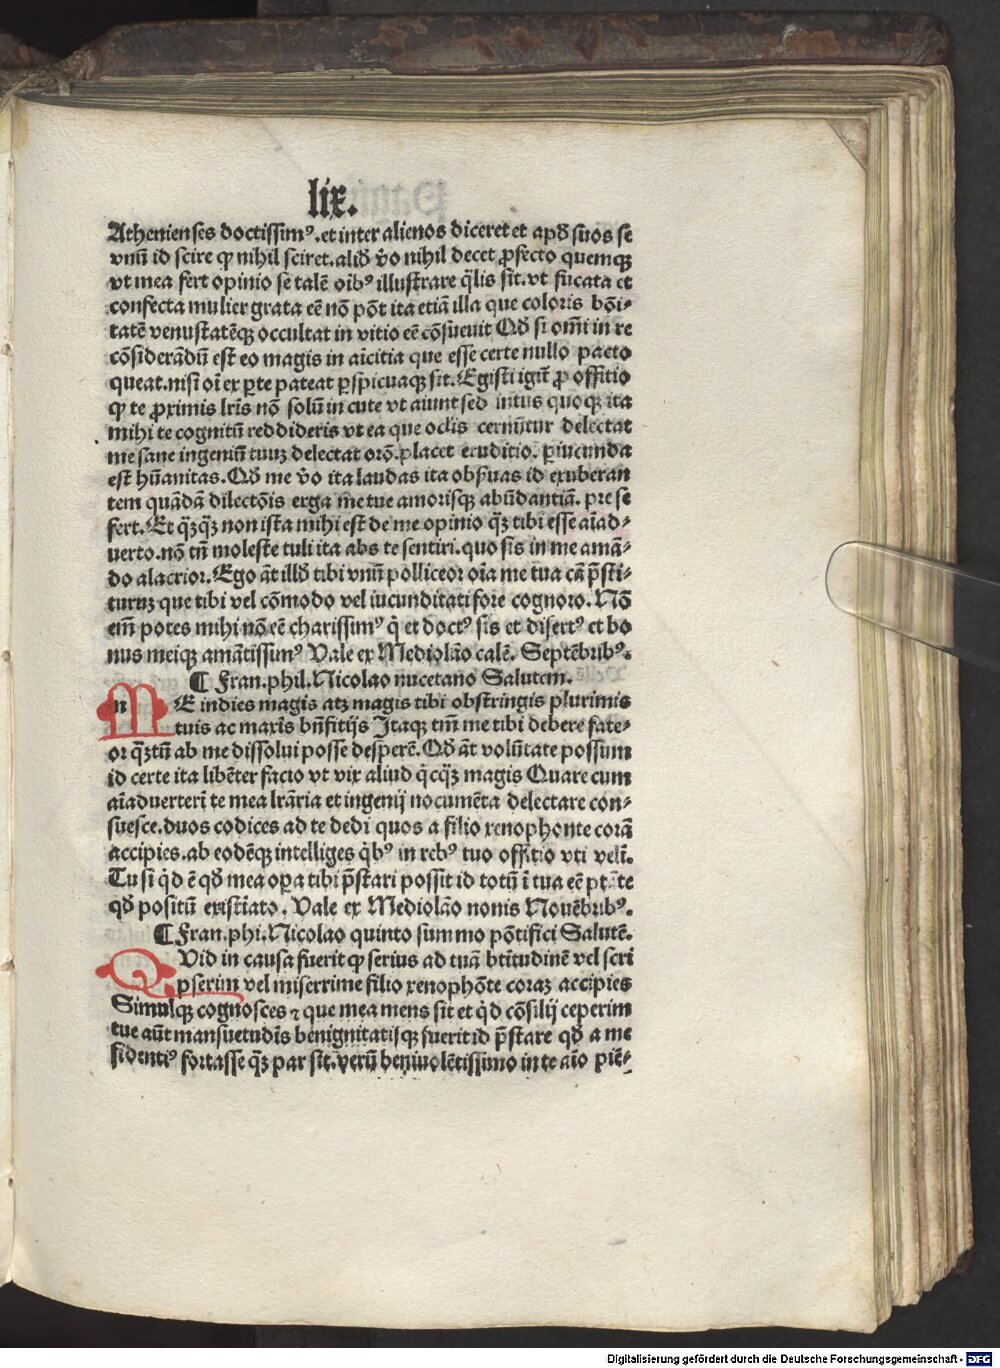 lix.
Athenienses doctissimꝰ. et inter alienos diceret et apď suos se
vnū id scire ꝙ nihil sciret. aliď v̄o nihil decet ꝓfecto quemqꝫ
vt mea fert opinio se talē oibꝰ illustrare q̄lis sit. vt fucata et
confecta mulier grata eē nō pōt ita etiā illa que coloris bōi-
tatē venustatēqꝫ occultat in vitio eē cōsueuit Qď si om̄i in re
cōsiderādū est eo magis in aīcitia que esse certe nullo pacto
queat. nisi oī ex ꝑte pateat ꝑspicuaqꝫ sit. Egisti igit̄ ꝓ offitio
ꝙ te ꝓximis lr̄is nō solū in cute vt aiunt sed intus quoqꝫ ita
mihi te cognitū reddideris vt ea que oclis cernūtur delectat
me sane ingeniū tuuꝫ delectat orō. placet eruditio. ꝑiucunda
est hūanitas. Qď me v̄o ita laudas ita obẜuas id exuberan
tem quādā dilectōis erga me tue amorisqꝫ abūdantiā. pre se
fert. Et q̄ꝫq̄ꝫ non ista mihi est de me opinio q̄ꝫ tibi esse aīad-
uerto. nō tn̄ moleste tuli ita abs te sentiri. quo sis in me amā-
do alacrior. Ego āt illď tibi vnū polliceor oīa me tua cā p̄sti-
turuꝫ que tibi vel cōmodo vel iucunditati fore cognoro. Nō
em̄ potes mihi nō eē charissimꝰ q̇ et doctꝰ sis et disertꝰ et bo
nus meiqꝫ amātissimꝰ Vale ex Mediolāo calē. Septēbribꝰ.
¶ Fran. phil. Nicolao nucetano Salutem.
M E indies magis atꝫ magis tibi obstringis plurimis
tuis ac maxīs bn̄fitijs Itaqꝫ tm̄ me tibi debere fate-
or q̄ꝫtū ab me dissolui posse desperē. Qď āt volūtate possum
id certe ita libēter facio vt vix aliud q̇cq̄ꝫ magis Quare cum
aīaduerterī te mea lr̄aria et ingenij nocumēta delectare con-
suesce. duos codices ad te dedi quos a filio xenophonte corā
accipies. ab eodēqꝫ intelliges q̇bꝰ in rebꝰ tuo offitio vti velī.
Tu si q̇d ē qď mea oꝑa tibi p̄stari possit id totū ī tua eē ptāte
qď positū existīato. Vale ex Mediolāo nonis Nouēbribꝰ.
¶ Fran. phi. Nicolao quinto summo pōtifici Salutē.
Q Vid in causa fuerit ꝙ serius ad tuā btītudinē vel scri
pserim vel miserrime filio xenophōte coraꝫ accipies
Simulqꝫ cognosces ⁊ que mea mens sit et q̇d cōsilij ceperim
tue aūt mansuetudīs benignitatisqꝫ fuerit id p̄stare qď a me
fidentiꝰ fortasse q̄ꝫ par sit. verū beniuolētissimo in te aīo piē-
Digitalisierung gefördert durch die Deutsche Forschungsgemeinschaft - DFG